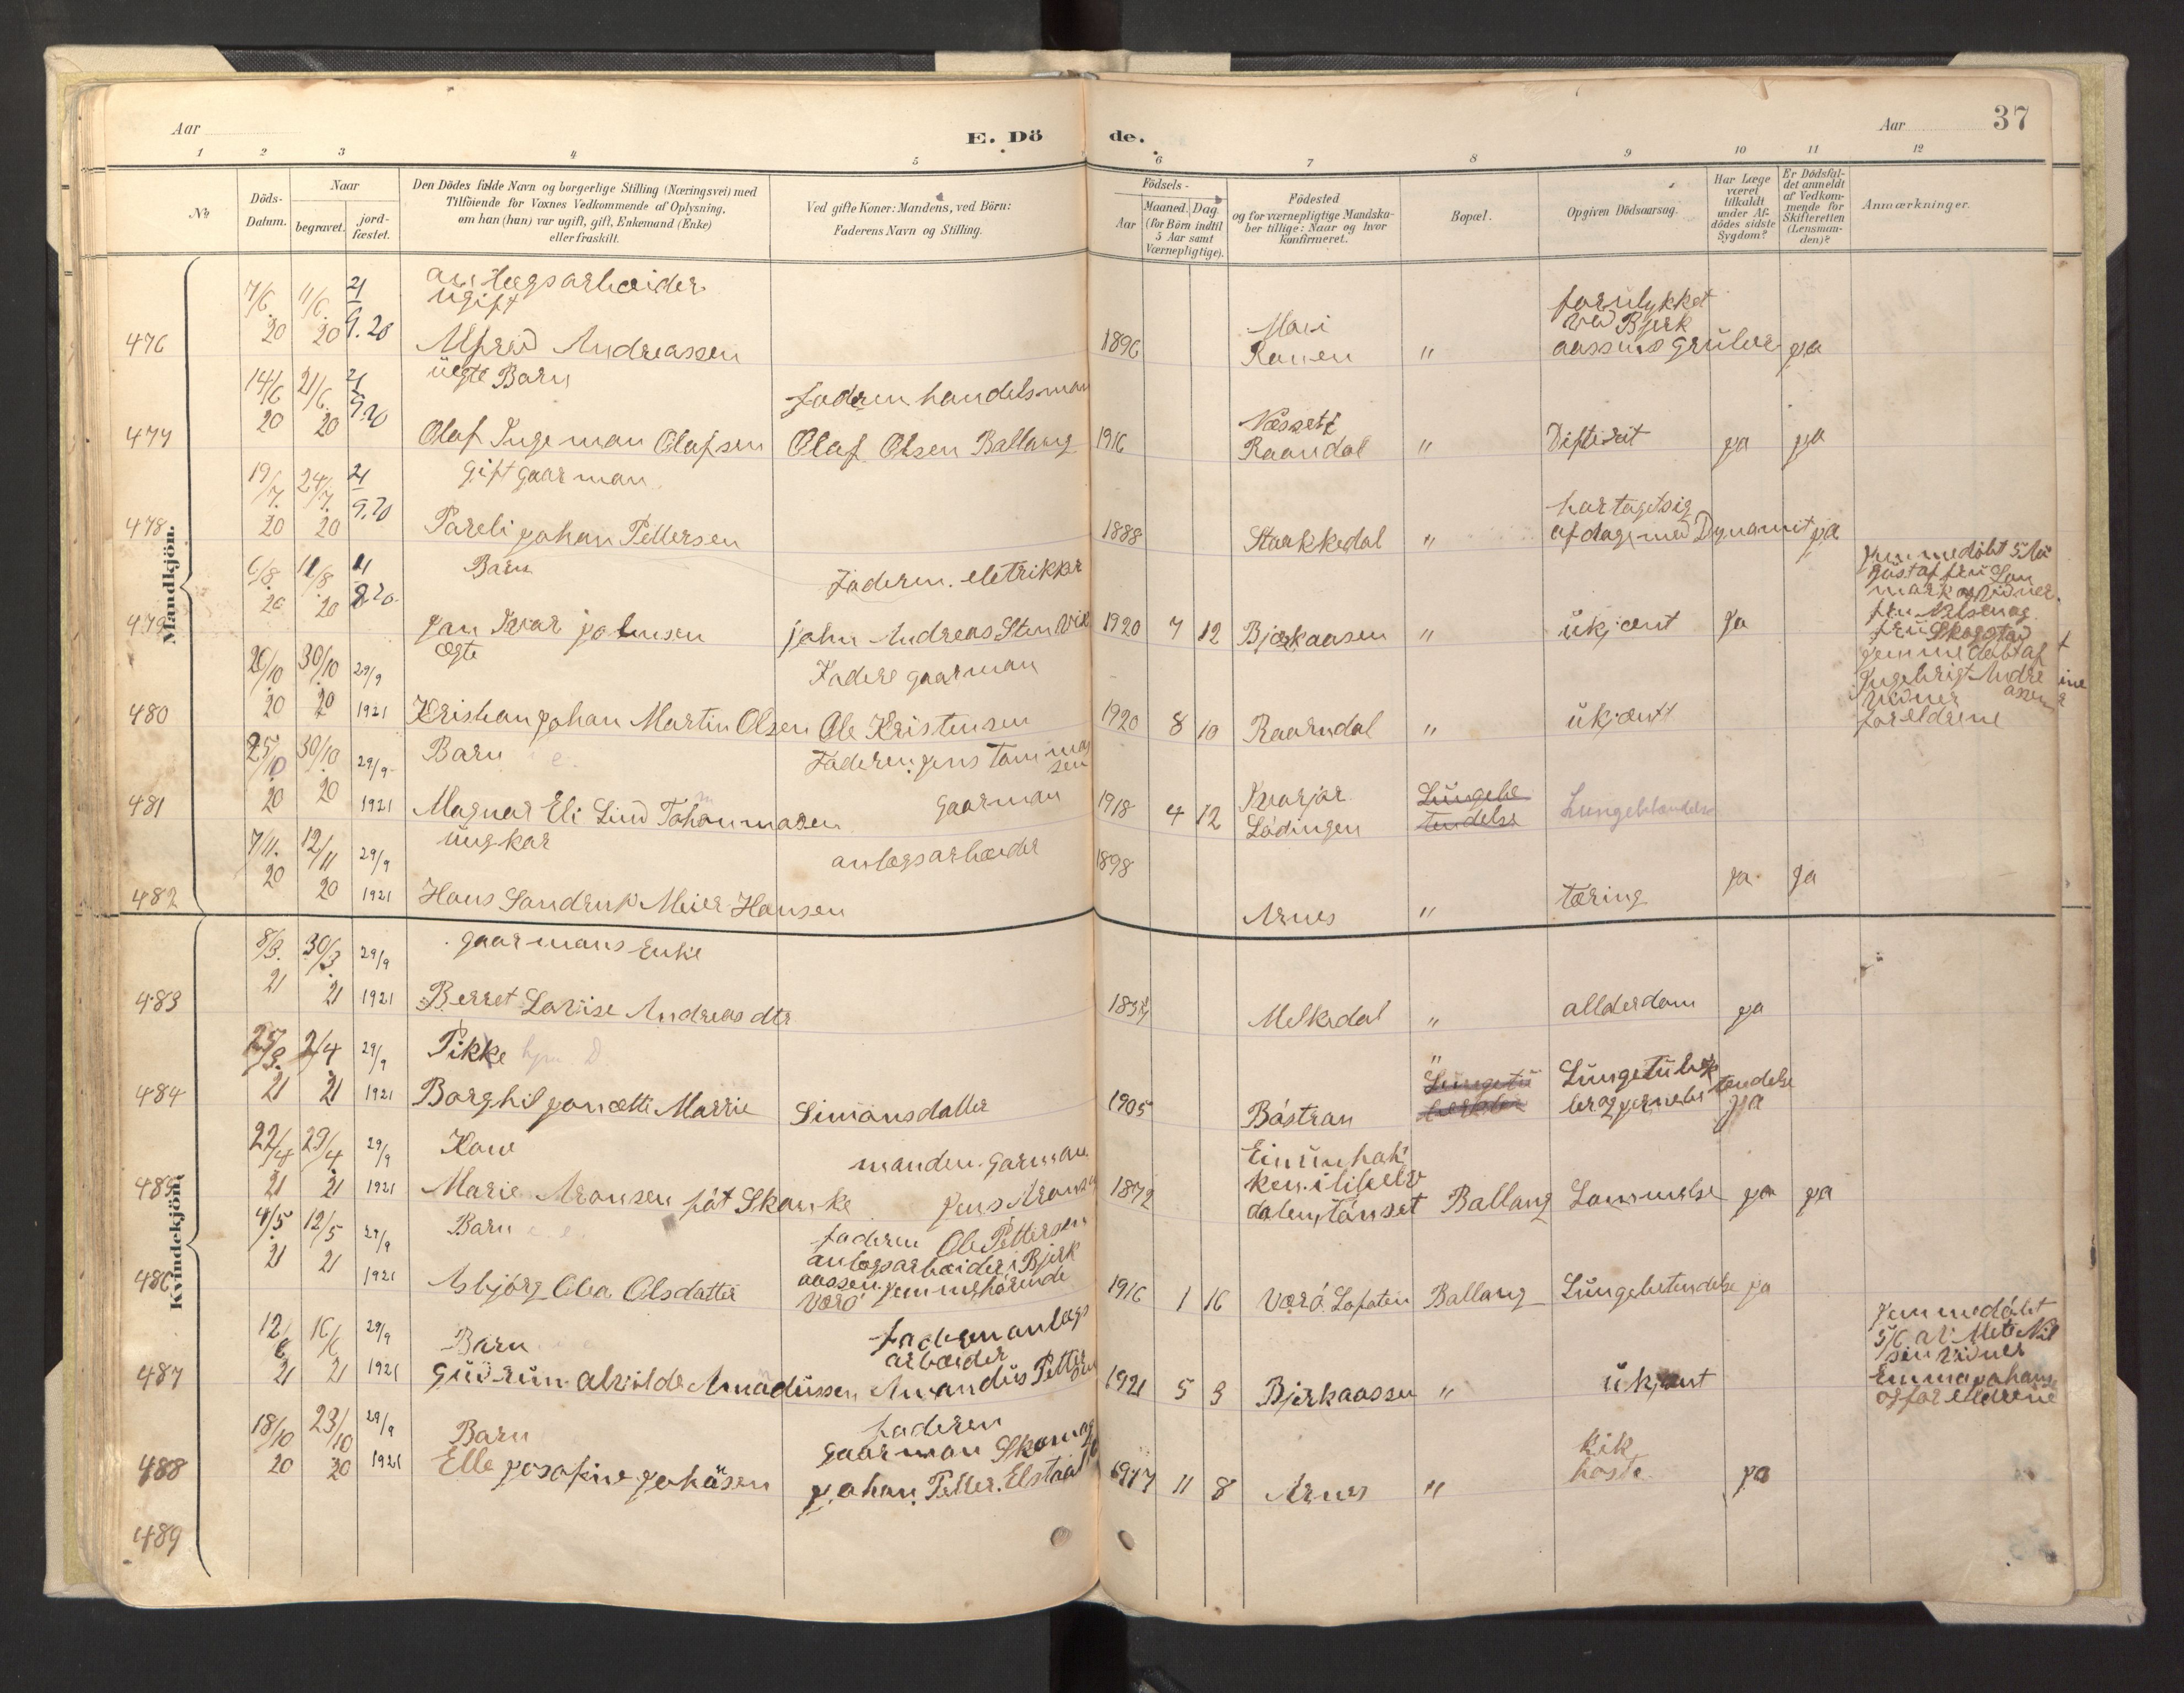 37
Aar
Aar
E. Dö de.
1 2 3 4 5 6 7 8 9 10 11 12
No
Döds-
Datum.
Naar
begravet.
jord-
fæstet.
Den Dödes fulde Navn og borgerlige Stilling (Næringsvei) med
Tilföiende for Voxnes Vedkommende af Oplysning,
om han (hun) var ugift, gift, Enkemand (Enke)
eller fraskilt.
Ved gifte Koner: Mandens, ved Börn:
Faderens Navn og Stilling.
Födsels-
Aar
Maaned. Dag
(for Börn indtil
5 Aar samt
Værnepligtige).
Födested
og for værnepligtige Mandska-
ber tillige: Naar og hvor
konfirmeret.
Bopæl.
Opgiven Dödsaarsag.
Har Læge
været
tilkaldt
under Af-
dödes sidste
Sygdom?
Er Dödsfal-
det anmeldt
af Vedkom-
mende for
Skifteretten
(Lensman-
den)?
Anmærkninger.
Mandkjön.
anlægsarbeider
ugift
476 7/6 20 11/6 20 21/9.20 Alfred Andreassen 1896 Moi Ranen " forulykket
ved Bjerk
aassens Gruber ja
uegte Barn
Faderen handelsman
477 14/6 20 21/6 20 21/9.20 Olaf Ingeman Olafsen Olaf Olsen Ballang 1916 Næsset i
Raandal " Difterit ja ja
gift gaarman
478 19/7. 20 24/7. 20 21/9.20 Pareli Johan Pettersen 1888 Starkkedal " har taget sig
af dage med Dynamit ja
Barn
Faderen. eletriker
479 6/8. 20 11/8. 20 Jan Ivar Johnsen John Andreas Stenvik 1920 7 12 Bjerkaasen " ukjent Ja
ægte
Fadere gaarman
480 26/10 20 30/10 20 29/9 1921 Kristian Johan Martin Olsen Ole Kristensen 1920 8 10 Raarndal " ukjent
jemmedøbt af
Ingebrigt Andre
assen
vidner
foreldrene
Barn
Faderen Jens Tommas
sen
gaarman
481 25/10 20 30/10 20 29/9 1921 Magnar Eli Lind 1918 4 12 Kvarjor
Lödingen Lungebe
tendelse Lungebetændelse
ungkar
anlægsarbeider
482 7/11. 20 12/11 20 29/9 1921 Hans Sandrup Meier Hansen 1898 Arnes " tæring ja Ja
Kvindekjön.
gaarmans Enke
483 8/3. 21 30/3. 21 29/9 1921 Berret Lovise Andreas dtr Melkedal " allderdom ja
Pikke
484 25/3. 21 2/4 21 29/9 1921 Borghil Jonette Marrie Simonsdatter 1905 Båstran " Lungetuberk
Kone
manden. garman
485 22/4 21 29/4 21 29/9 1921 Marie Aronsen föt Skanke Jens Aronsen 1872
dalen, Tönset Ballang Lammelse ja ja
Barn
faderen Ole Pettersen
anlegsarbeider i Bjerk
aassen jemmehörende
Verö
486 4/5 21 12/5 21 29/9 1921 Asbjörg Olea Olsdatter 1916 1 16 Værö Lofoten Ballang Lungebetendelse ja
Barn
Faderen anlægs
arbeider
487 12/6 21 16/6 21 29/9 1921 Gudrun alvilde Amadussen Amandus Petter 1921 5 3 Bjerkaassen " ukjent
jemmedöbt
5/6 av Mete Nil
sen vidner
Emma Johans
og foreldrene
Barn
faderen
gaarman Skomag
488 18/10 20 23/10 20 29/9 1921 Elle Josofine Johansen Johan Petter. Elstad 1917 11 8 Arnes " kik
hoste ja
489